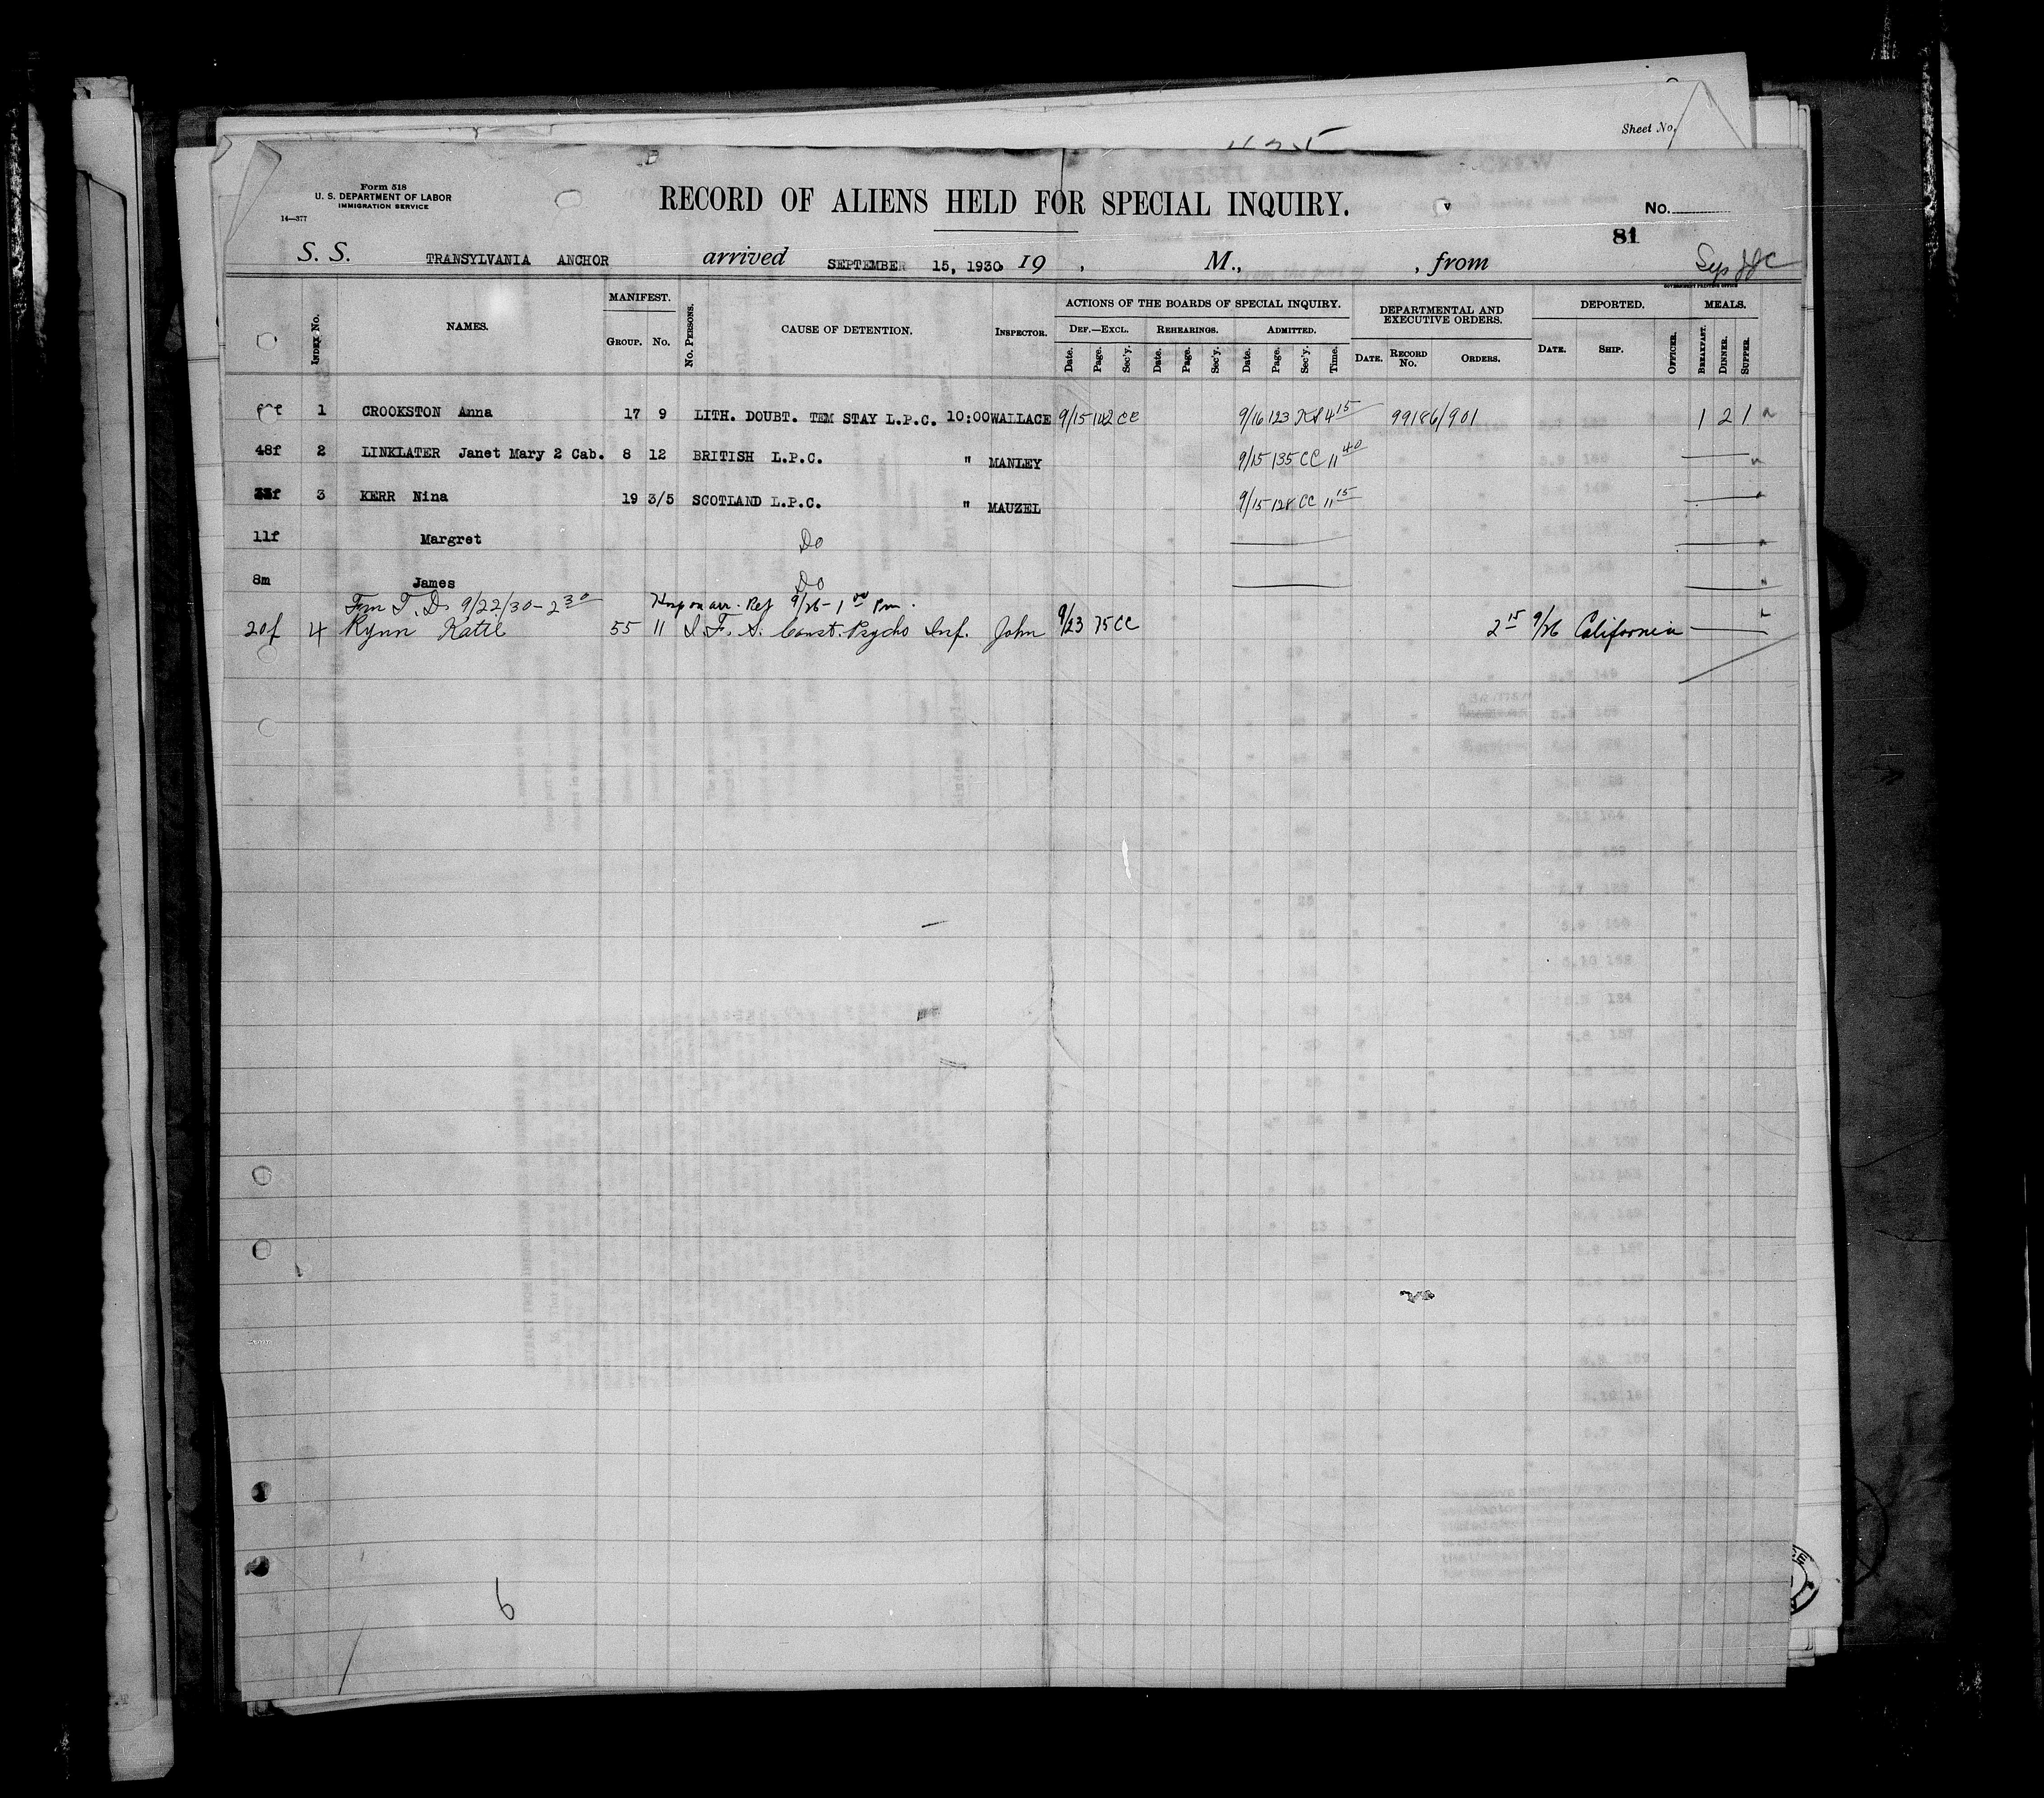 Sheet No.
Form 518
U. S. DEPARTMENT OF LABOR
IMMIGRATION SERVICE
14—377
RECORD OF ALIENS HELD FOR SPECIAL INQUIRY.
No.
81
S. S. TRANSYLVANIA ANCHOR arrived SEPTEMBER 15, 1930 19 , M., , from
GOVERNMENT PRINTING OFFICE
INDEX No. NAMES. MANIFEST. GROUP. No. No. PERSONS. CAUSE OF DETENTION. INSPECTOR. ACTIONS OF THE BOARDS OF SPECIAL INQUIRY. DEF.—EXCL. Date. Page. Sec'y. REHEARINGS. Date. Page. Sec'y. ADMITTED. Date. Page. Sec'y. Time. DEPARTMENTAL AND EXECUTIVE ORDERS. DATE. RECORD No. ORDERS. DEPORTED. DATE. SHIP. OFFICER. MEALS. BREAKFAST. DINNER. SUPPER.
1 CROOKSTON Anna 17 9 LITH. DOUBT. TEM STAY L.P.C. 10:00 WALLACE 9/15 142 CC 9/16 123 4 15 99186/901 1 2 1
48f 2 LINKLATER Janet Mary 2 Cab. 8 12 BRITISH L.P.C. " MANLEY 9/15 135 CC 11 40
3 KERR Nina 19 3/5 SCOTLAND L.P.C. " MAUZEL 9/15 128 CC 11 15
11f Margret Do
8m James Do
Fm T. D. 9/22/30 - 2 30 Hosp on arr. Rej 9/26 - 1 00 Pm.
20f 4 Rynn Katie 55 11 Const. Psycho Inf. John 9/23 75 CC 2 15 9/26 California
6